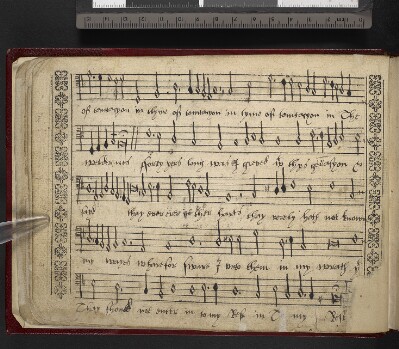 of temtacyon in tyme of temtacyon in tyme of temtacyon in The
wyldernes forty yers long was I greved thys generacyon
sayd they ever erre ther harts they verely hath not knowne
my wayes wherfore sware I unto them in my wrath yt
They should not enter in to my Rest in my Rest